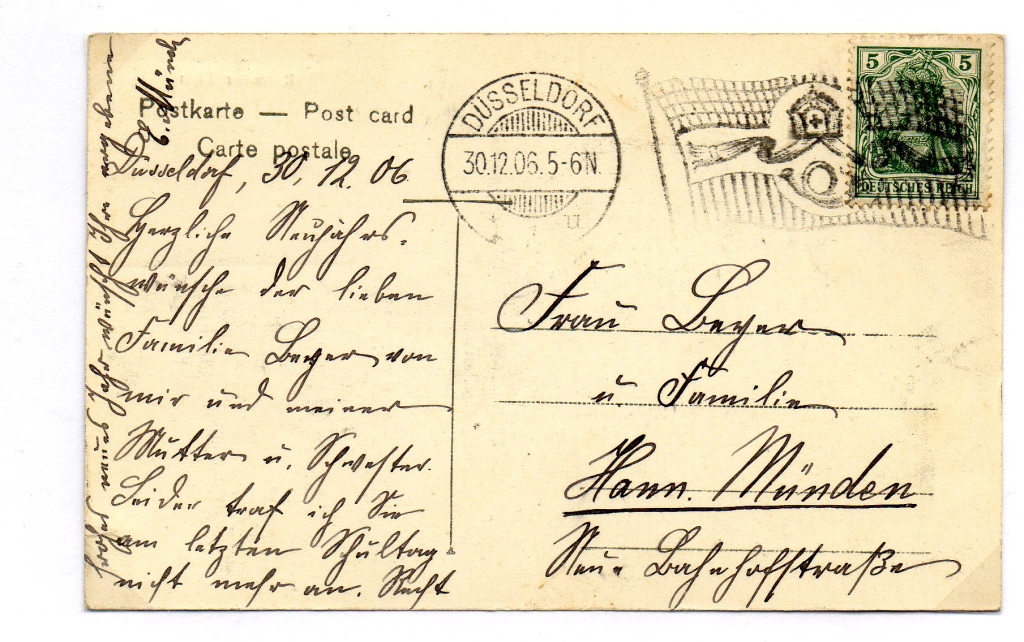 Postkarte — Post card
Carte postale
Düsseldorf, 30. 12. 06
Herzliche Neujahrs-
wünsche der lieben
Familie Beyer von
mir und meiner
Mutter u. Schwester.
Leider traf ich Sie
am letzten Schultag
nicht mehr an. Recht
frohes neues Jahr wünscht Ihr ergebener
E. Münch
DÜSSELDORF
30.12.06.5-6N.
5 5
DEUTSCHES REICH
Frau Beyer
u. Familie
Hann. Münden
Neue Bahnhofstraße